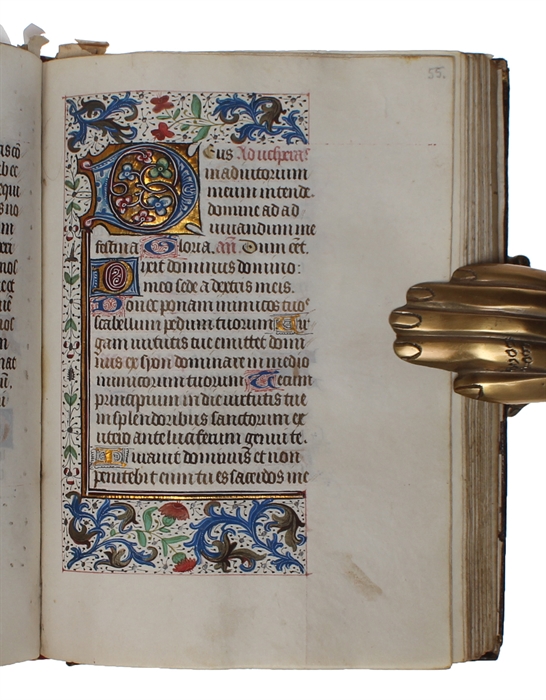 55.
Deus Ad vesperas
in adiutorium
meum intende.
domine ad ad
iuuandum me
festina Gloria. añ. Dum eēt.
Dixit dominus domino:
meo sede a dextris meis.
Donec ponam inimicos tuos
scabellum pedum tuorum Vir
gam uirtutis tue emittet domi
nus ex syon dominare in medio
inimicorum tuorum Tecum
principium in die uirtutis tue
in splendoribus sanctorum ex
utero ante luciferum genui te.
Iurauit dominus et non
penitebit eum tu es sacerdos in e